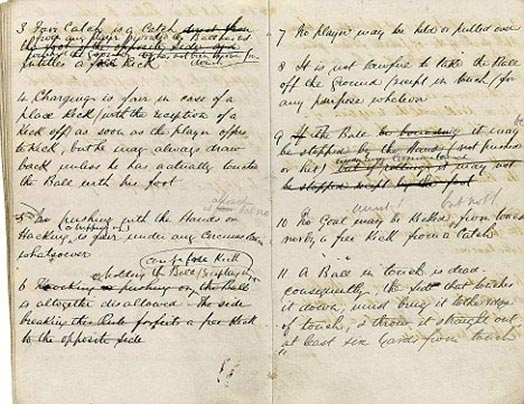 3 Fair Catch is a Catch direct from
the foot of the opposite side and
entitles a free kick
4 Charging is fair in case of a
place kick (with the exception of a
kick off) as soon as the player offers
to kick, but he may always draw
back unless he has actually touched
the Ball with his foot
5 No pushing with the Hands or
Hacking is fair under any Circumstances
whatsoever
holding the Ball
6 Knocking or pushing on the Ball
is altogether disallowed. The side
breaking this Rule forfeits a free Kick
to the opposite side
7 No player may be held or pulled over
8 It is not lawful to take the Ball
off the ground (except in touch) for
any purpose whatever
9 If the Ball be bouncing it may be
stopped by the Hand (not pushed
or hit) but if rolling it may not
be stopped except by the foot
10 No Goal may be kicked from touch
nor by a free Kick from a Catch
11 A Ball in touch is dead.
consequently the side that touches
it down, must bring it to the edge
of touch, & throw it straight out
at least six yards from touch